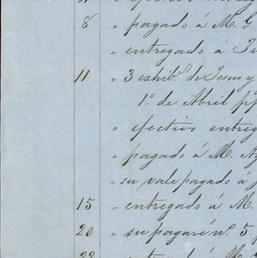 8 " pagado á M. G
" entregado a
11 " 3 exhib.s de Junio y
1.º de Abril pp
" efectivo entreg
" pagado á M.
" su vale pagado á
15 " entregado á M.
20 " su pagaré n.º 5
22